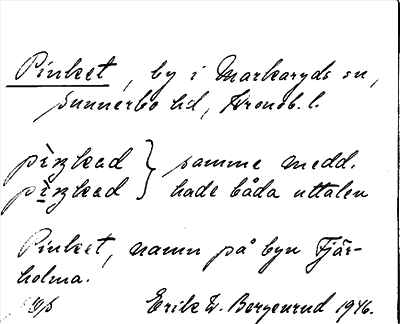 Pinket, by i Markaryds sn,
Sunnerbo hd, Kronob. l.
pìŋkad } samme medd.
pìŋkad } hade båda uttalen
Pinket, namn på byn Fjär-
holma.
Erik W. Bergenrud 1946.